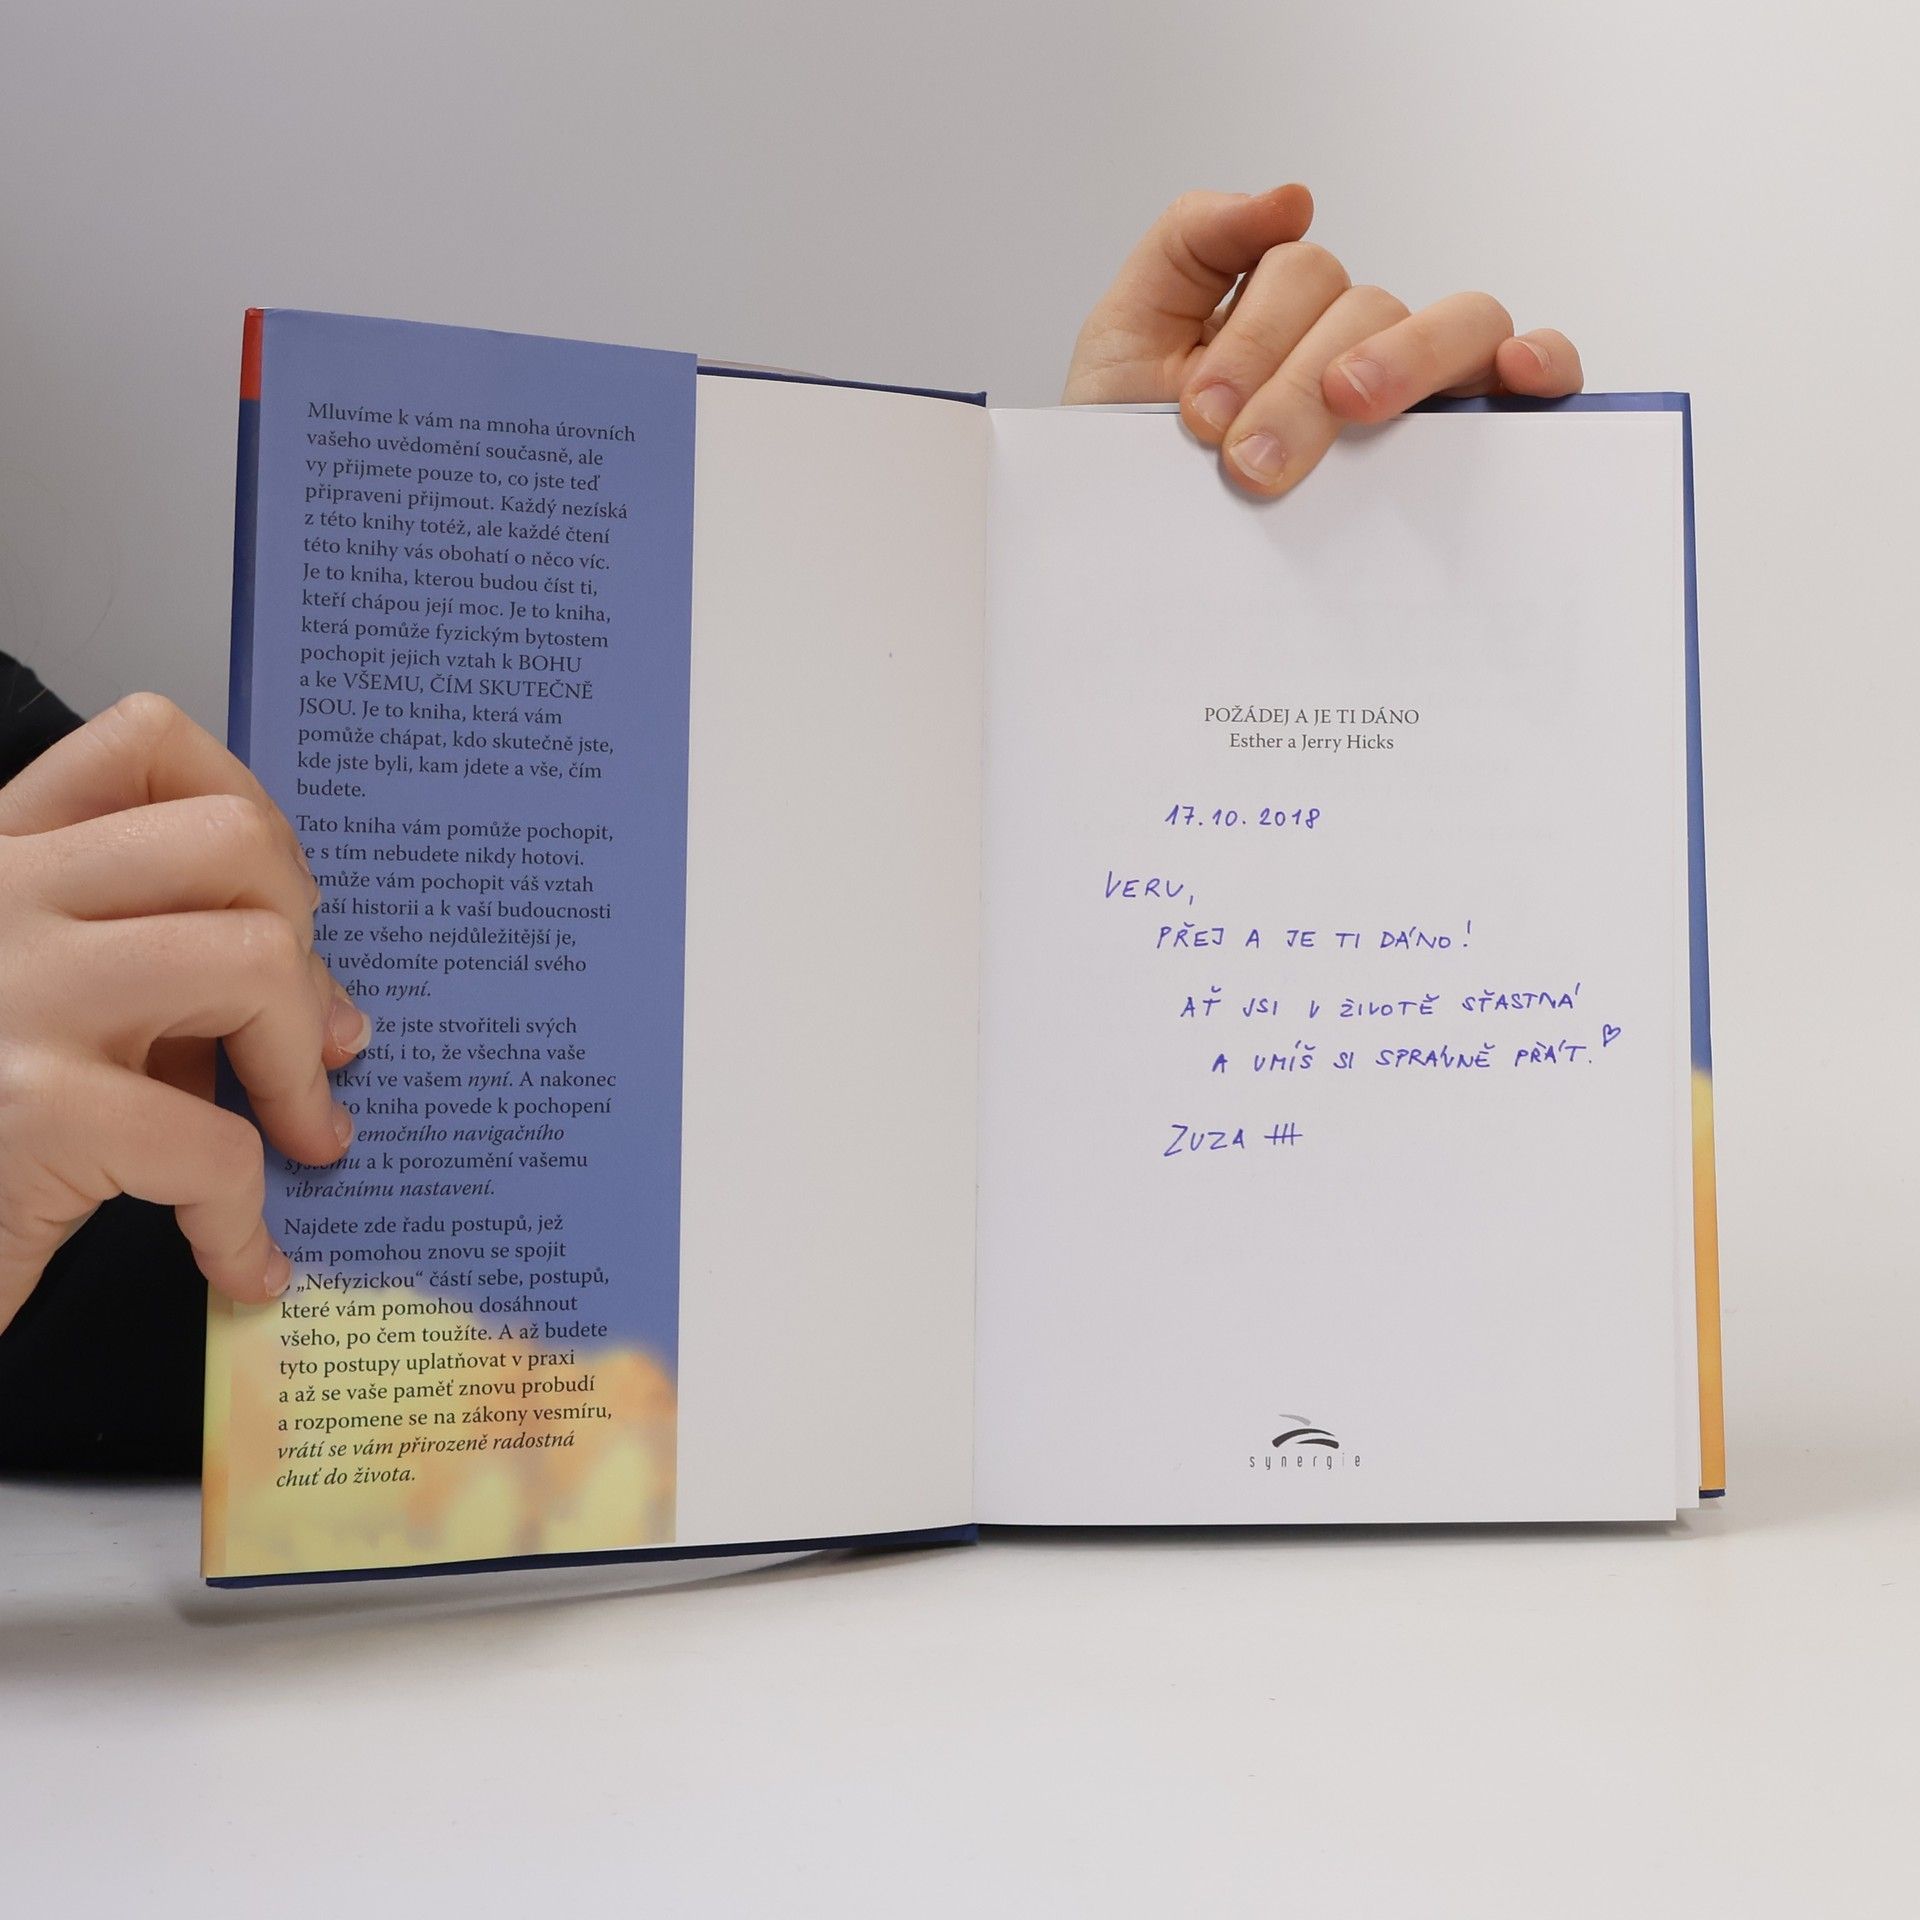 Mluvíme k vám na mnoha úrovních
vašeho uvědomění současně, ale
vy přijmete pouze to, co jste teď
připraveni přijmout. Každý nezíská
z této knihy totéž, ale každé čtení
této knihy vás obohatí o něco víc.
Je to kniha, kterou budou číst ti,
kteří chápou její moc. Je to kniha,
která pomůže fyzickým bytostem
pochopit jejich vztah k BOHU
a ke VŠEMU, ČÍM SKUTEČNĚ
JSOU. Je to kniha, která vám
pomůže chápat, kdo skutečně jste,
kde jste byli, kam jdete a vše, čím
budete.
Tato kniha vám pomůže pochopit,
s tím nebudete nikdy hotovi.
vám pochopit váš vztah
historii a k vaší budoucnosti
ale ze všeho nejdůležitější je,
uvědomíte potenciál svého
nyní.
že jste stvořiteli svých
i to, že všechna vaše
tkví ve vašem nyní. A nakonec
kniha povede k pochopení
emočního navigačního
a k porozumění vašemu
vibračnímu nastavení.
Najdete zde řadu postupů, jež
vám pomohou znovu se spojit
„Nefyzickou“ částí sebe, postupů,
které vám pomohou dosáhnout
všeho, po čem toužíte. A až budete
tyto postupy uplatňovat v praxi
a až se vaše paměť znovu probudí
a rozpomene se na zákony vesmíru,
vrátí se vám přirozeně radostná
chuť do života.
POŽÁDEJ A JE TI DÁNO
Esther a Jerry Hicks
17.10.2018
VERU,
PŘEJ A JE TI DÁNO!
AŤ JSI V ŽIVOTĚ SŤASTNÁ
A UMÍŠ SI SPRÁVNĚ PŘÁT.
ZUZA
synergie